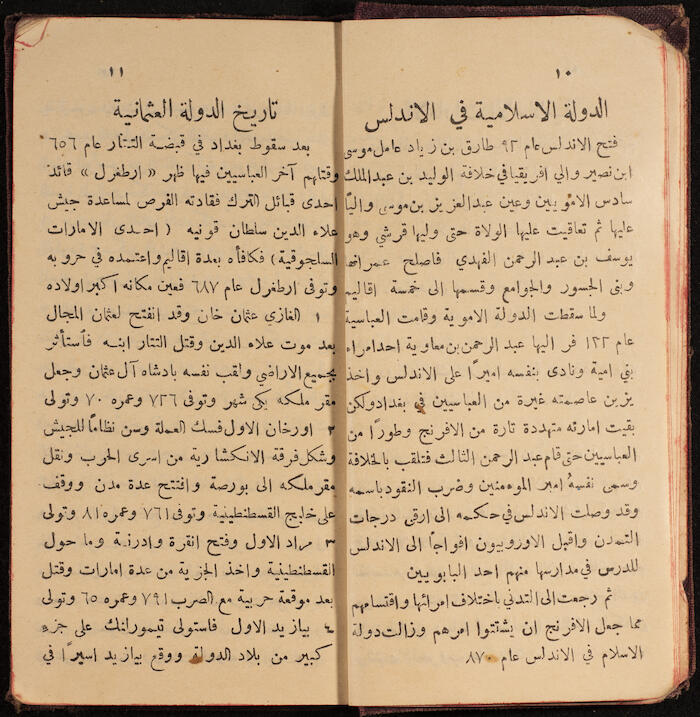 ١٠
الدولة الاسلامية في الاندلس
فتح الاندلس عام ٩٢ طارق بن زياد عامل موسى
ابن نصير والي افريقيا في خلافة الوليد بن عبد الملك
سادس الامويين وعين عبد العزيز بن موسى والياً
عليها ثم تعاقبت عليها الولاة حتى وليها قرشي وهو
يوسف بن عبد الرحمن الفهدي فاصلح عمرانها
وبنى الجسور والجوامع وقسمها الى خمسة اقاليم
ولما سقطت الدولة الاموية وقامت العباسية
عام ١٢٢ فر اليها عبد الرحمن بن معاوية احد امراء
بني امية ونادى بنفسه اميراً على الاندلس واخذ
يزين عاصمته غيرة من العباسيين في بغداد ولكن
بقيت امارته متهددة تارة من الافرنج وطوراً من
العباسيين حتى قام عبد الرحمن الثالث فتلقب بالخلافة
وسمى نفسه امير الموءمنين وضرب النقود باسمه
وقد وصلت الاندلس في حكمه الى ارقى درجات
التمدن واقبل الاوروبيون افواجاً الى الاندلس
للدرس في مدارسها منهم احد البابويين
ثم رجعت الى التدني باختلاف امرائها واقتسامهم
مما جعل الافرنج ان يشتتوا امرهم وزالت دولة
الاسلام في الاندلس عام ٨٧٠
١١
تاريخ الدولة العثمانية
بعد سقوط بغداد في قبضة التتار عام ٦٥٦
وقتلهم آخر العباسيين فيها ظهر « ارطغرل » قائد
احدى قبائل الترك فقادته الفرص لمساعدة جيش
علاء الدين سلطان قونيه ( احدى الامارات
السلجوقية ) فكافأه بعدة اقاليم واعتمده في حروبه
وتوفى ارطغرل عام ٦٨٧ فعين مكانه اكبر اولاده
١ الغازي عثمان خان وقد انفتح لعثمان المجال
بعد موت علاء الدين وقتل التتار ابنه فأستأثر
بجميع الاراضي ولقب نفسه بادشاه آل عثمان وجعل
مقر ملكه يكي شهر وتوفى ٧٢٦ وعمره ٧٠ وتولى
٢ اورخان الاول فسك العملة وسن نظاماً للجيش
وشكل فرقة الانكشارية من اسرى الحرب ونقل
مقر ملكه الى بورصة وافتتح عدة مدن ووقف
على خليج القسطنطينية وتوفى ٧٦١ وعمره ٨١ وتولى
٣ مراد الاول وفتح انقرة وادرنة وما حول
القسطنطينية واخذ الجزية من عدة امارات وقتل
بعد موقعة حربية مع الصرب ٧٩١ وعمره ٦٥ وتولى
٤ بيازيد الاول فاستولى تيمورلنك على جزء
كبير من بلاد الدولة ووقع بيازيد اسيراً في